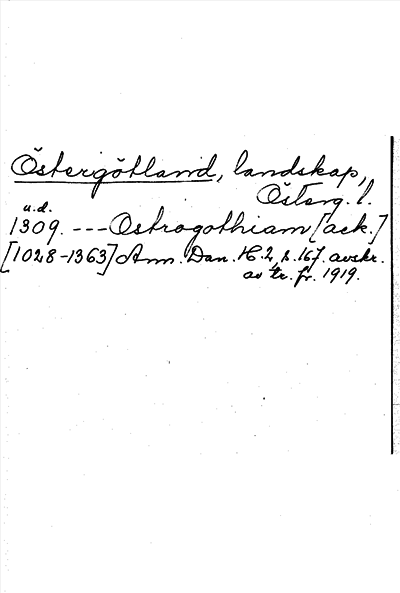 Östergötland, landskap,
Österg. l.
u.d.
1309. --- Ostrogothiam [ack.]
[1028-1363] Ann. Dan. H.2, s.167. avskr.
av tr. fr. 1919.